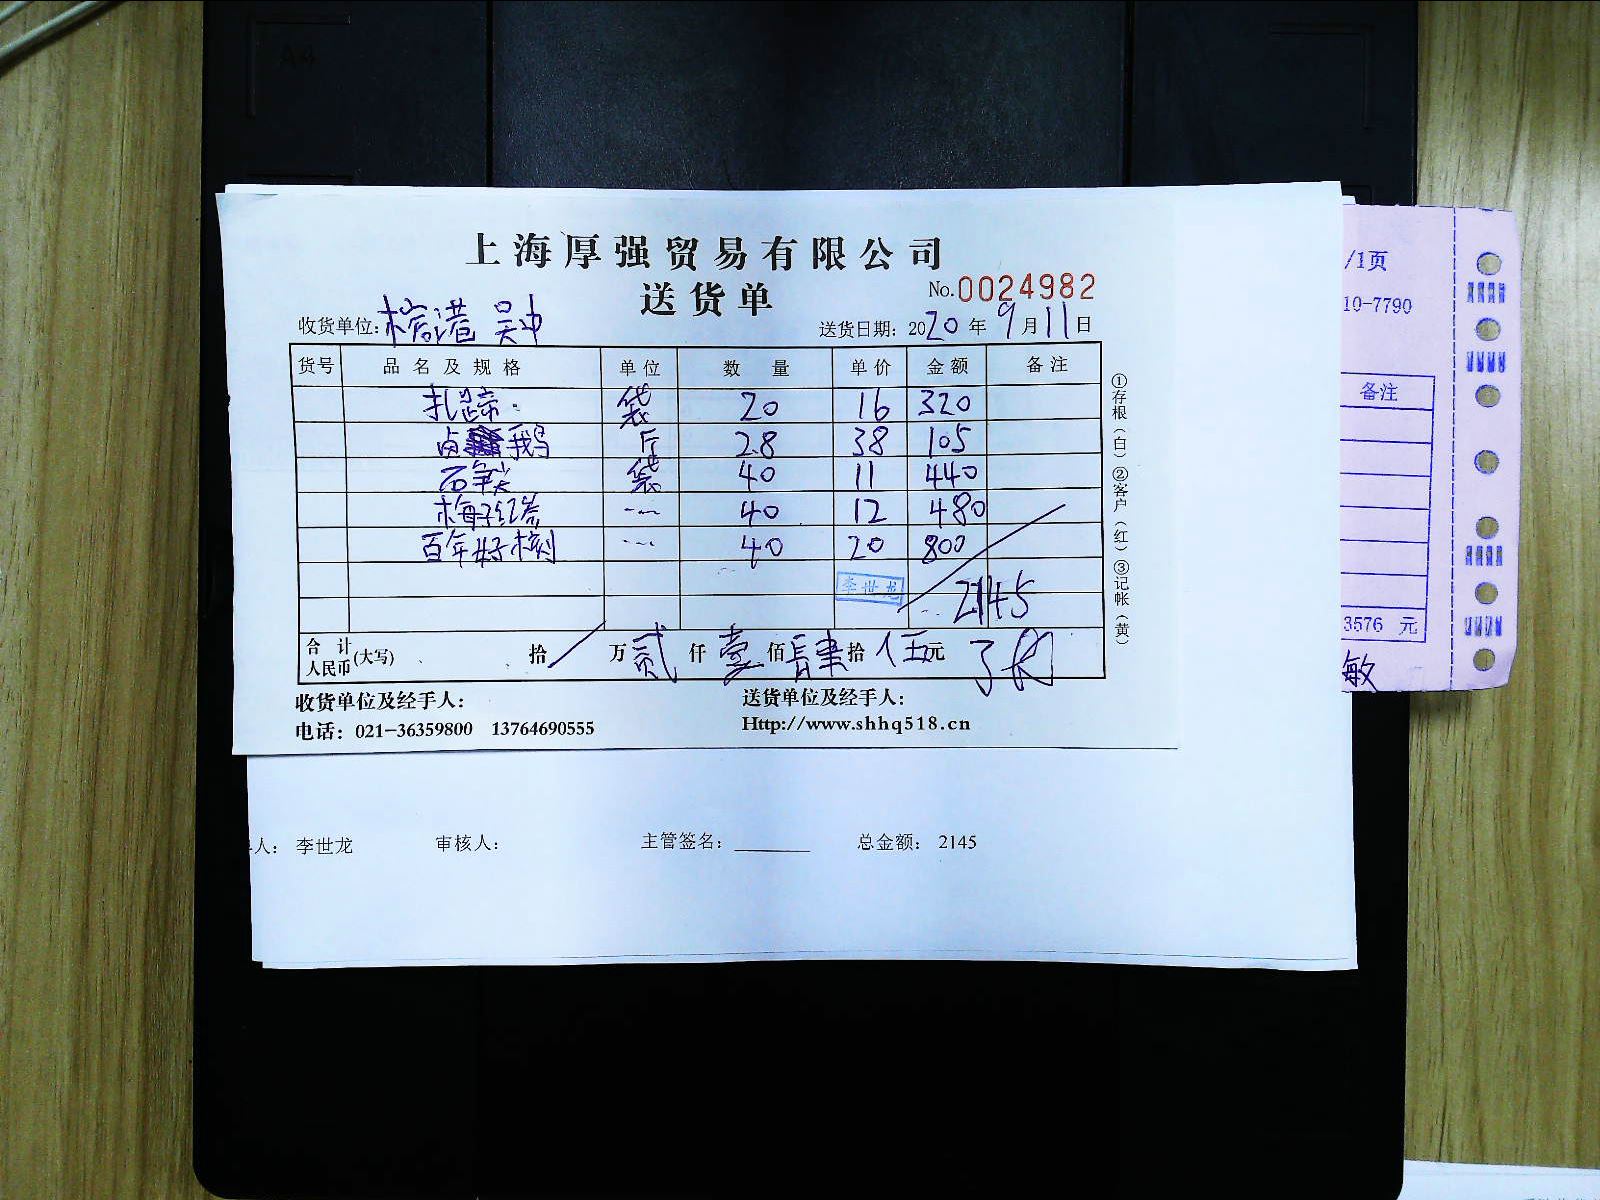 上海厚强贸易有限公司
送货单
No.0024982
收货单位: 吴中
送货日期: 2020年9月11日
货号 品名及规格 单位 数量 单价 金额 备注
扎蹄 袋 20 16 320
卤鹅 斤 2.8 38 105
石笋尖 袋 40 11 440
梅子红岩 40 12 480
百年好 40 20 800
李世龙
2145
合计人民币(大写) 拾 万 贰 仟 壹 佰 肆 拾 伍 元
收货单位及经手人:
送货单位及经手人:
电话: 021-36359800 13764690555
Http://www.shhq518.cn
①存根(白)②客户(红)③记帐(黄)
人: 李世龙 审核人: 主管签名: 总金额: 2145
/1页
10-7790
备注
3576 元
敏